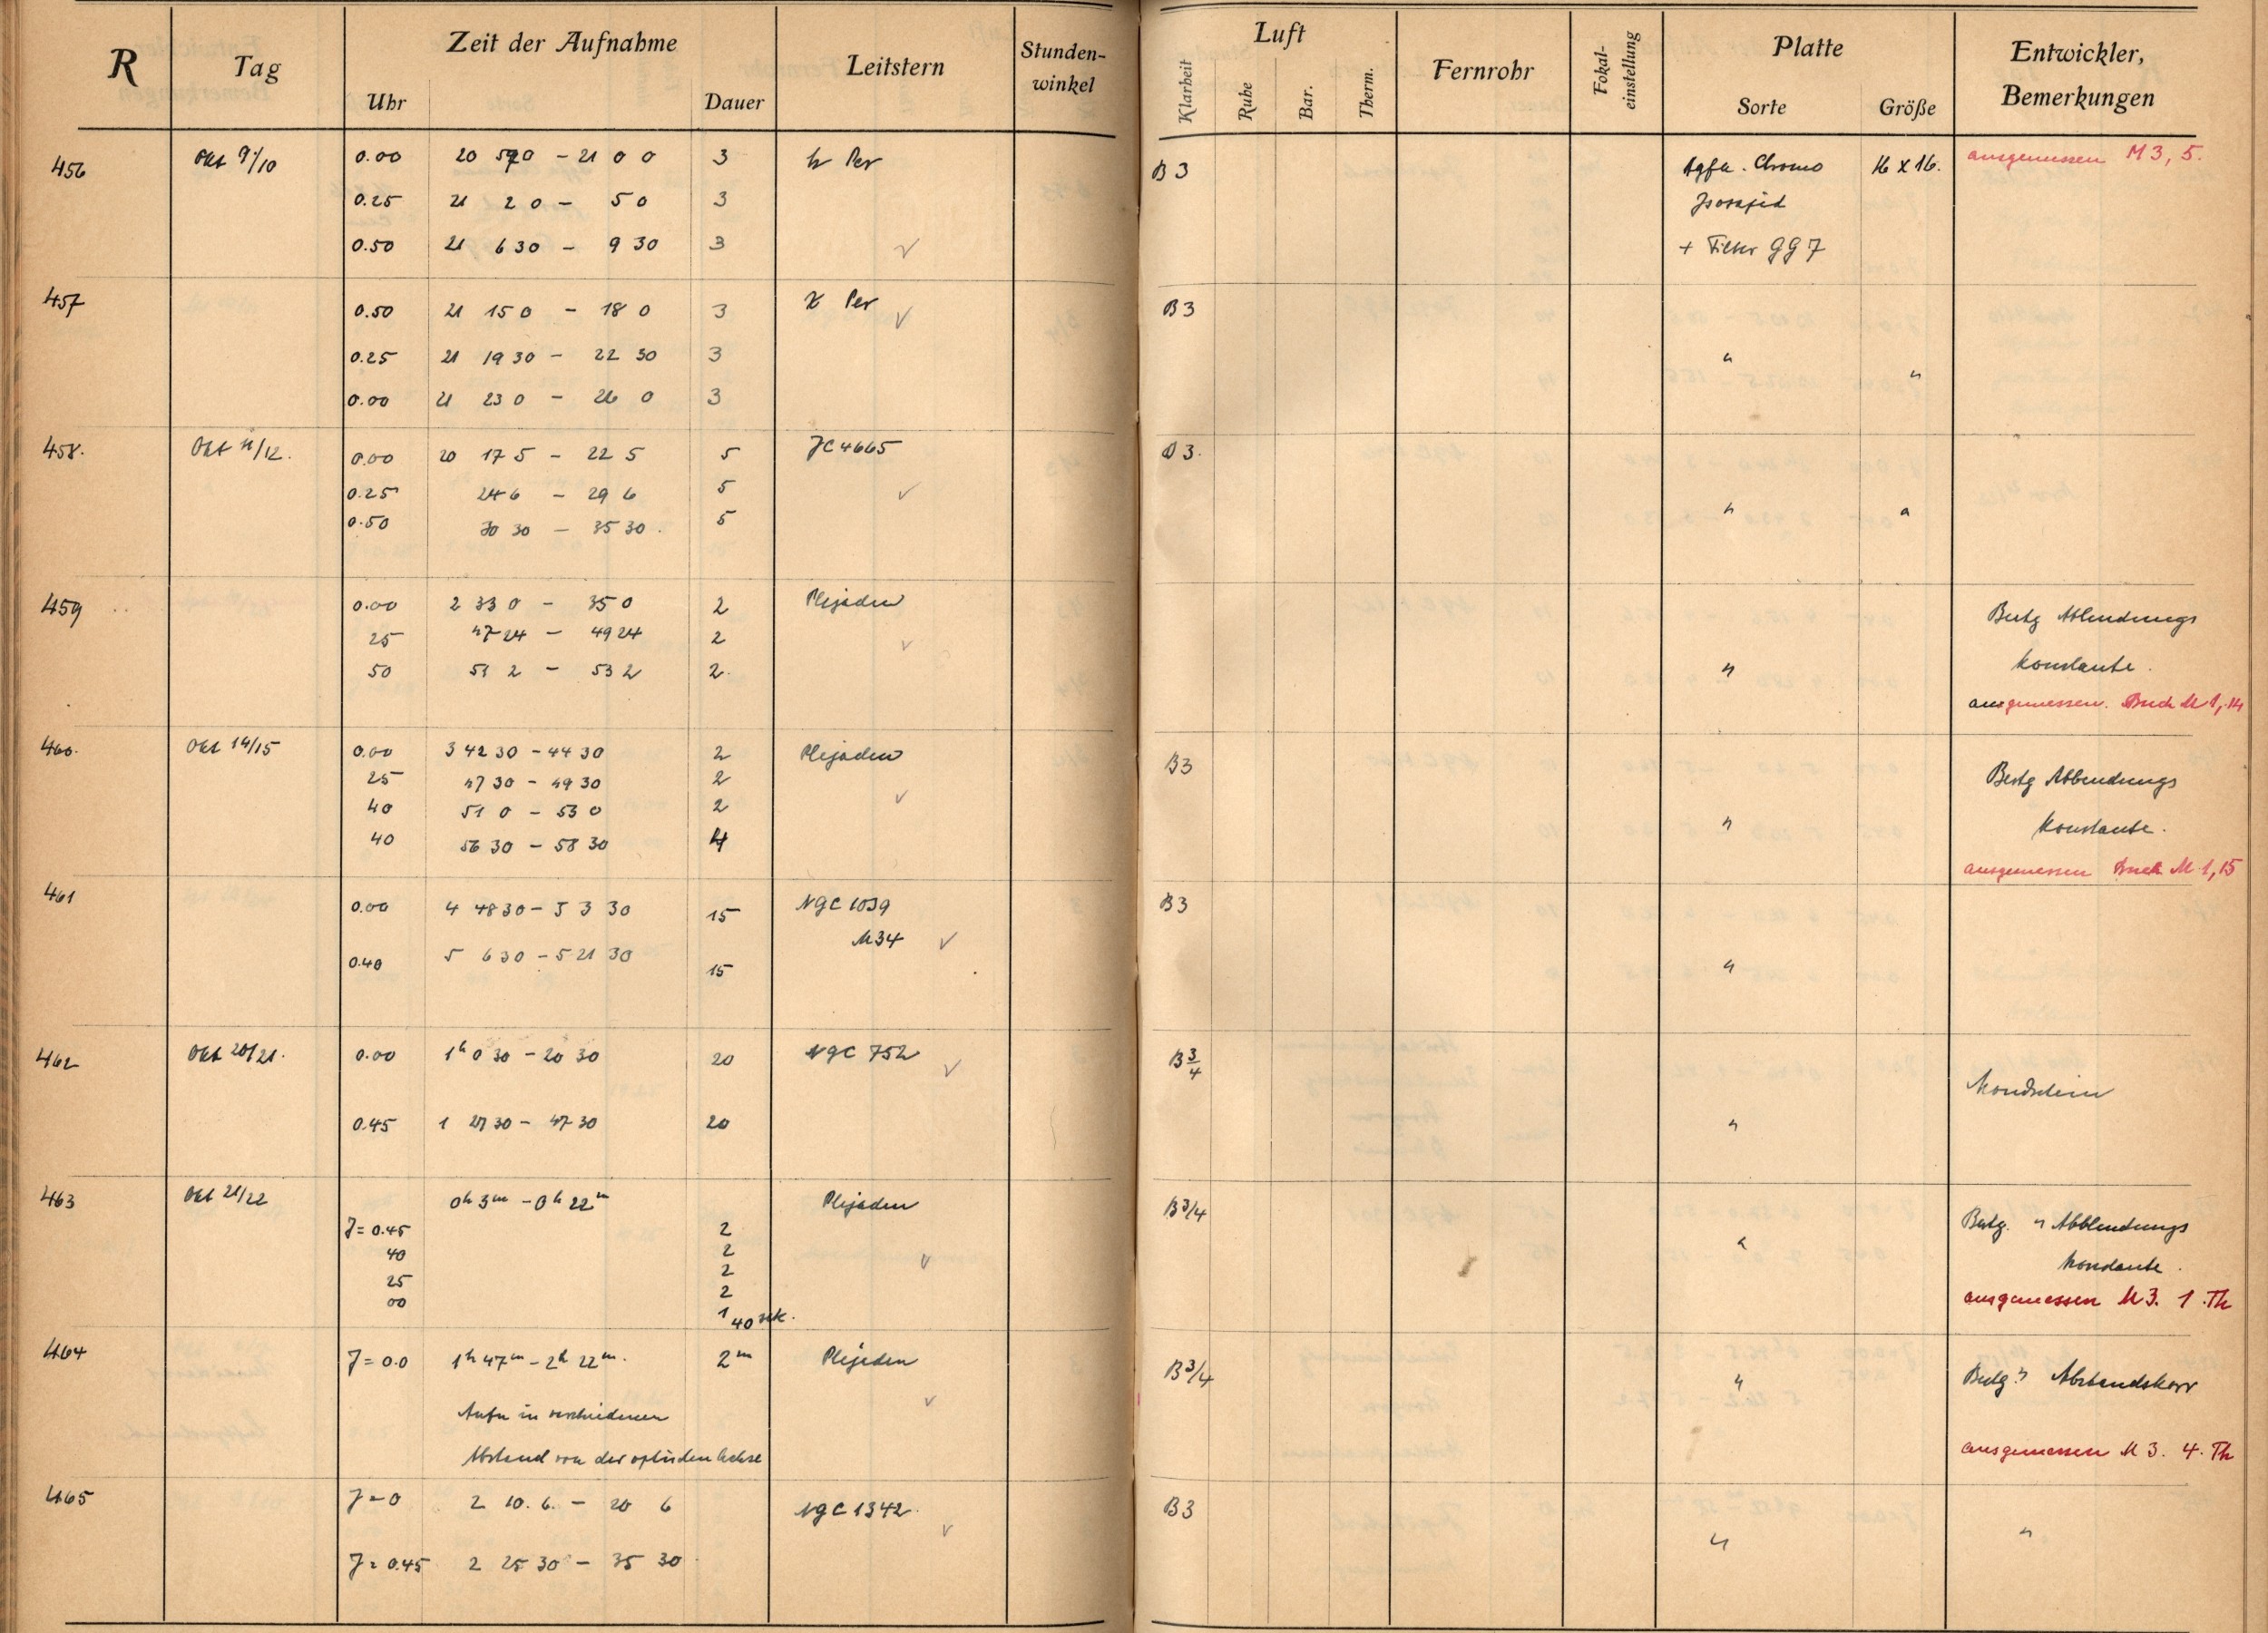 R Tag Zeit der Aufnahme Leitstern Stunden-winkel Luft Fernrohr Fokal-einstellung Platte Entwickler, Bemerkungen
Uhr Dauer Klarheit Ruhe Bar. Therm. Sorte Größe
456 Okt 9/10 0.00 20 – 21 0 0 3 h Per B 3 Agfa. Chromo 16 x 16. ausgemessen M 3, 5.
0.25 21 2 0 – 5 0 3 Isorapid
0.50 21 6 30 – 9 30 3 √ + Filter GG 7
457 0.50 21 15 0 – 18 0 3 χ Per √ B3
0.25 21 19 30 – 22 30 3 "
0.00 21 23 0 – 26 0 3 "
458. Okt 11/12. 0.00 20 17 5 – 22 5 5 JC 4665 B 3.
0.25 24 6 – 29 6 5 √
0.50 30 30 – 35 30. 5 " "
459 0.00 2 33 0 – 35 0 2 Plejaden Bestg Abblendungs
25 47 24 – 49 24 2 √ konstante.
50 51 2 – 53 2 2. " ausgemessen. Buch M 1, 14
460. Okt 14/15 0.00 3 42 30 – 44 30 2 Plejaden B3 Bestg Abblendungs
25 47 30 – 49 30 2 √
40 51 0 – 53 0 2 " Konstante.
40 56 30 – 58 30 ausgemessen Buch M 1, 15
461 0.00 4 48 30 – 5 3 30 15 NGC 1039 B3
M34 √
0.40 5 6 30 – 5 21 30 15 "
462 Okt 20/21. 0.00 1h 0 30 – 20 30 20 NGC 752 √ B 3/4
Mondschein
0.45 1 27 30 – 47 30 20 "
463 Okt 21/22 0h 3m – 0h 22m Plejaden B3/4
J = 0.45 2 Bestg. " Abblendungs
40 2 √ "
25 2 konstante.
00 2 ausgemessen M 3. 1. Th
1 40 sek.
464 J = 0.0 1h 47m – 2h 22m. 2m Plejaden B3/4 " Bestg. " Abstandskorr
Aufn in verschiedenen √
Abstand von der optischen Achse ausgemessen M 3. 4. Th
465 J = 0 2 10. 6. – 20 6 NGC 1342. √ B3 " "
J = 0.45 2 25 30 – 35 30